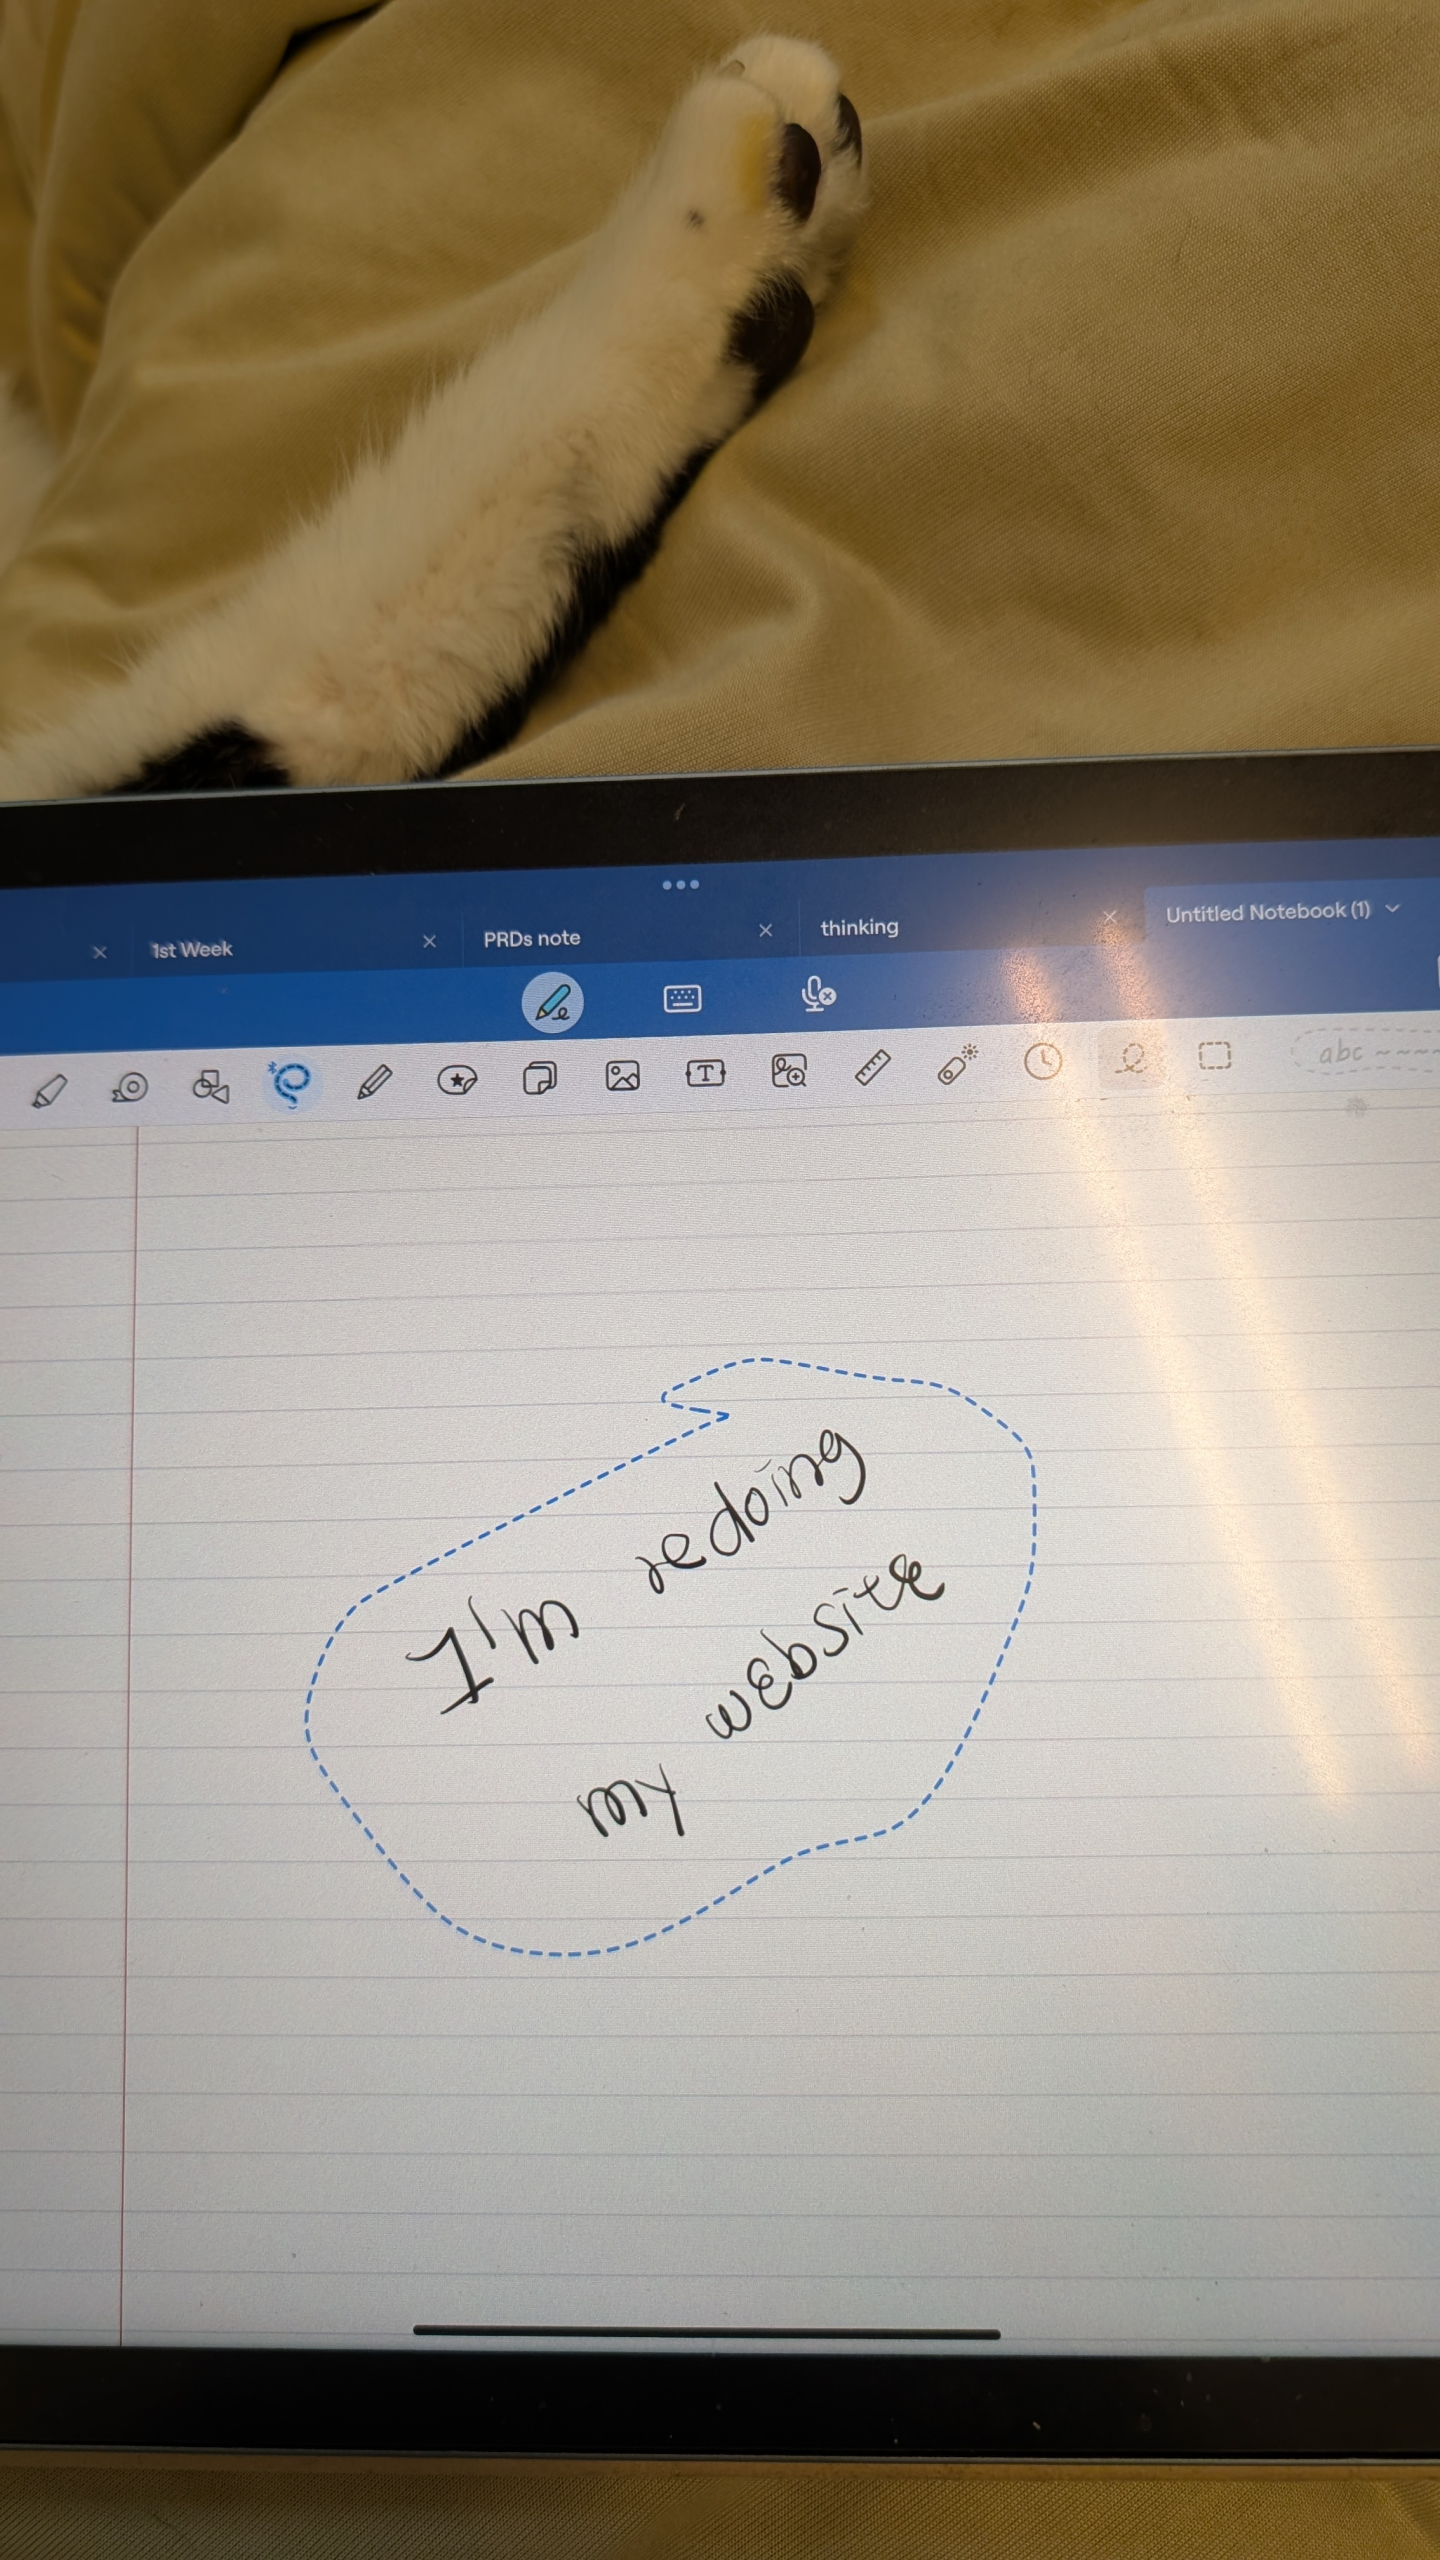 1st Week
PRDs note
thinking
Untitled Notebook (1)
abc
I'm redoing
my website